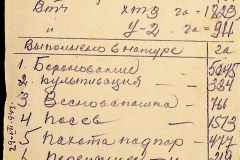 Вт" хтз га - 1283
" У-2 га - 911
Выполнено в натуре га
1. Боронование 5045
2. Культивация 384
3 Весновспашка 761
4 Посев 1573
5 Пахота под пар 477
6
29-VI-49г.